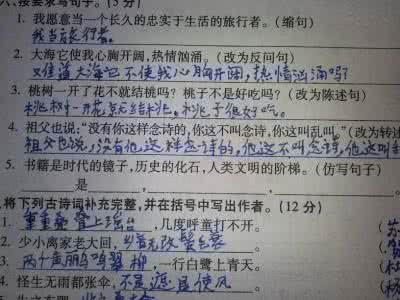 六、按要求写句子。(5分)
1. 我愿意当一个长久的忠实于生活的旅行者。(缩句)
我当旅行者。
2. 大海它使我心胸开阔,热情汹涌。(改为反问句)
难道大海它不使我心胸开阔,热情汹涌吗?
3. 桃树一开了花不就结桃吗?桃子不是好吃吗?(改为陈述句)
桃树一开花就结桃,桃子很好吃。
4. 祖父也说:“没有你这样念诗的,你这不叫念诗,你这叫乱叫。”(改为转述
祖父也说,没有他这样念诗的,他这不叫念诗,他这叫
5. 书籍是时代的镜子,历史的化石,人类文明的阶梯。(仿写句子)
是 , , 。
将下列古诗词补充完整,并在括号中写出作者。(12分)
1. 重重叠叠上瑶台,几度呼童打不开。
2. 少小离家老大回,乡音无改鬓毛衰。
3. 两个黄鹂鸣翠柳,一行白鹭上青天。
4. 怪生无雨都张伞,不是遮 是使风。